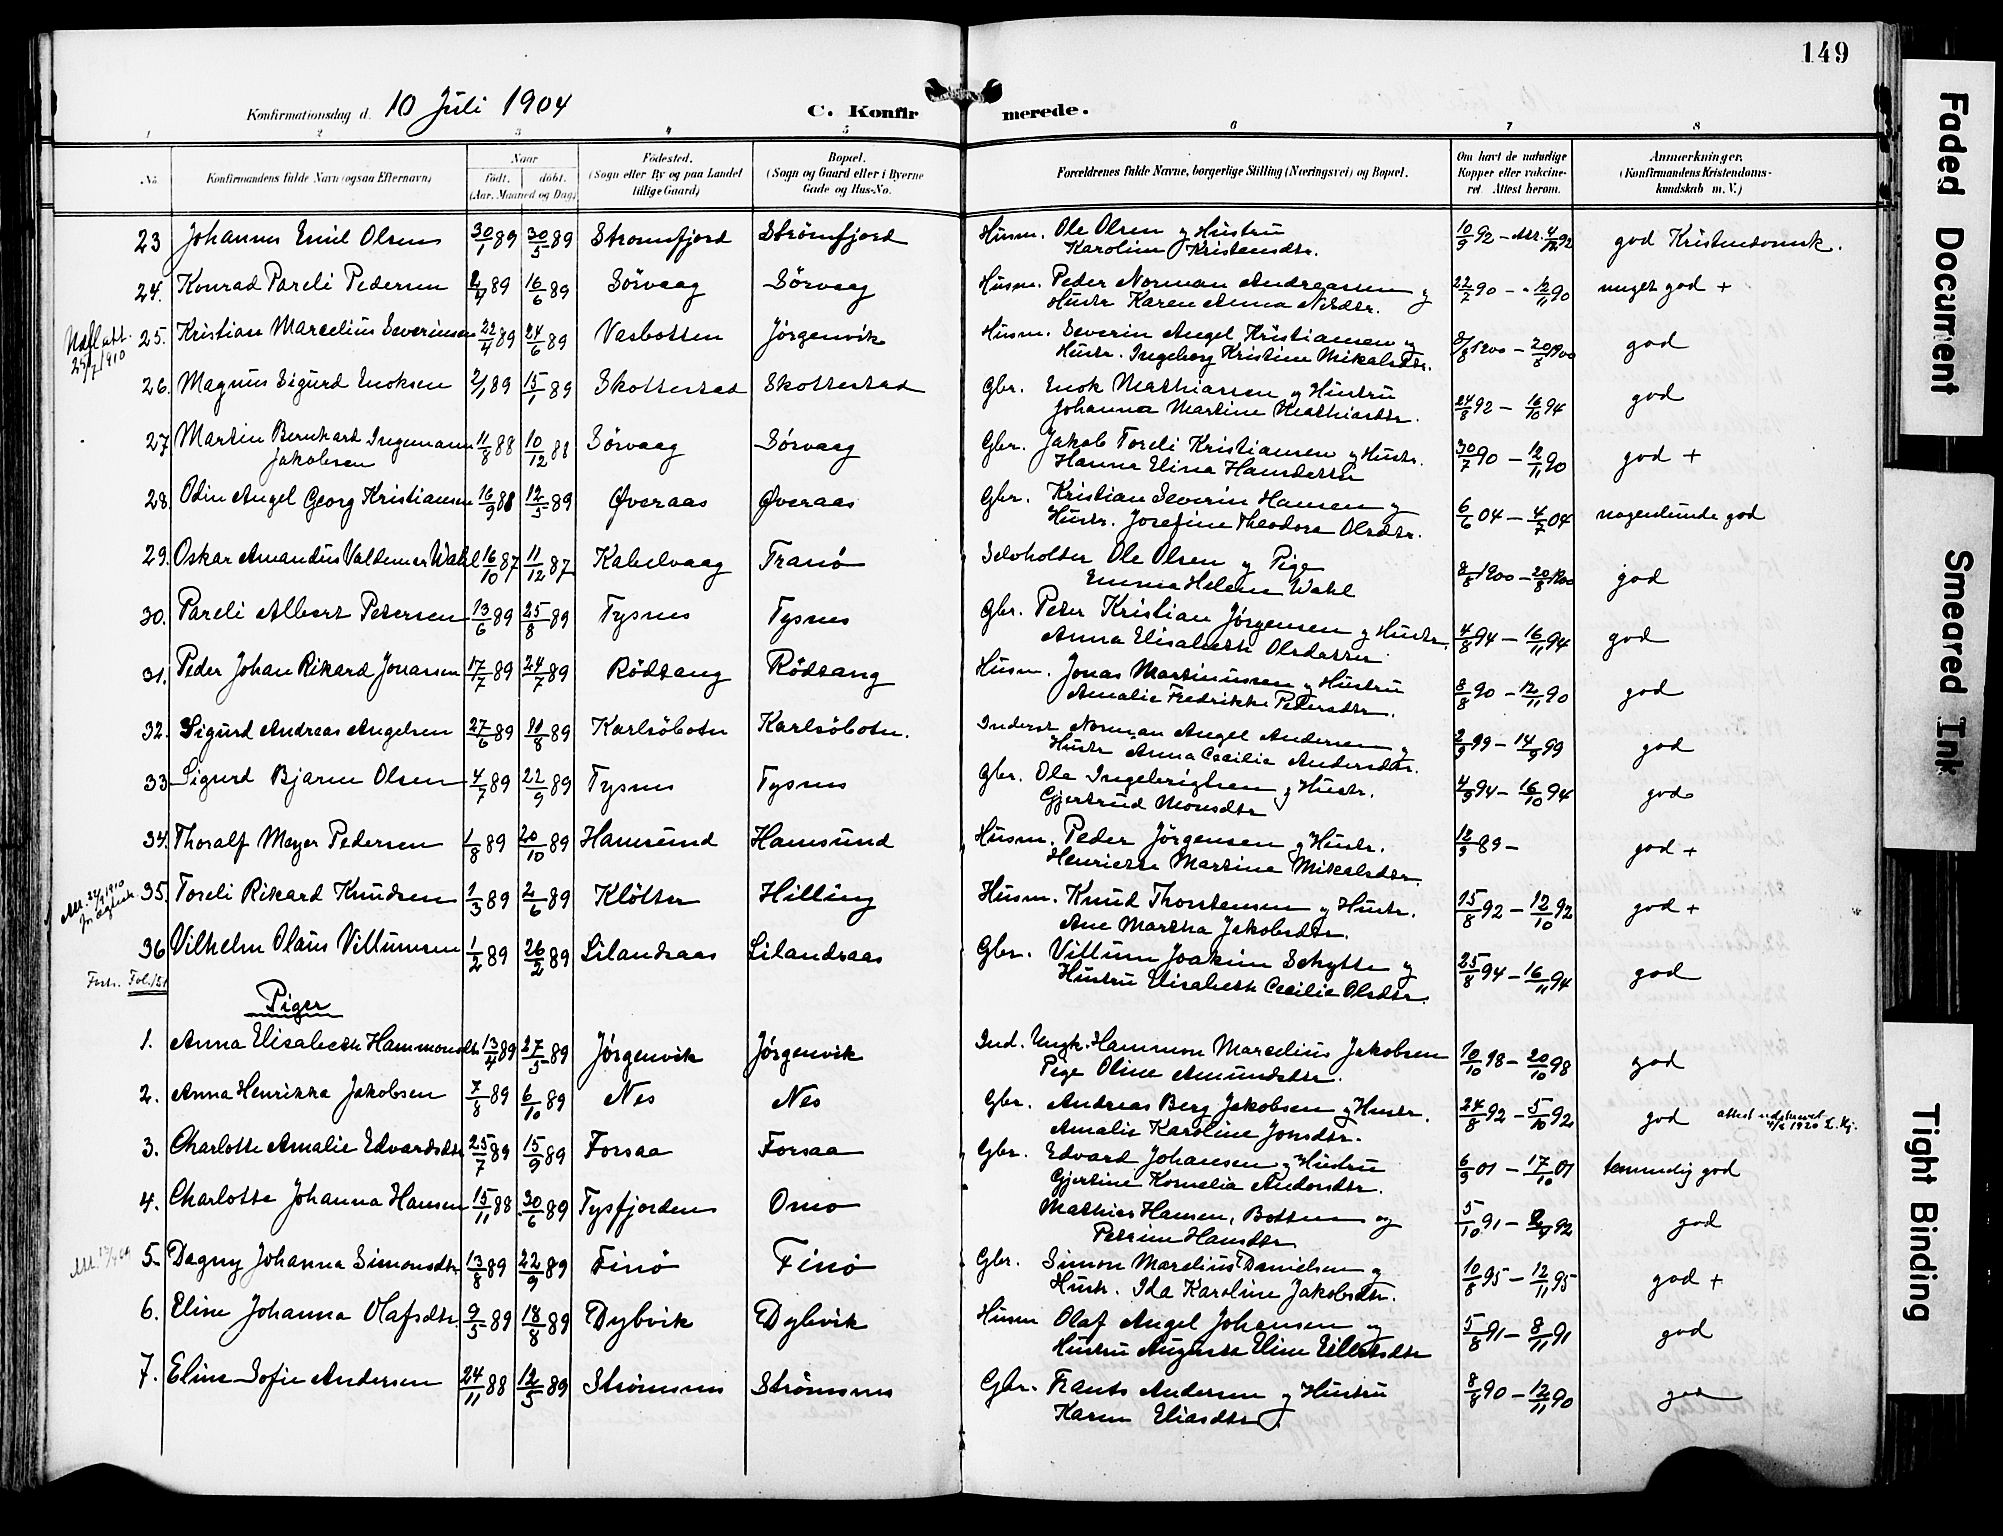 149
Konfirmationsdag d. 10 Juli 1904 C. Konfirmerede.
1 2 3 4 5 6 7 8
No Konfirmandens fulde Navn (ogsaa Efternavn) Naar født. døbt. (Aar, Maaned og Dag) Fødested. (Sogn eller By og paa Landet tillige Gaard) Bopæl. (Sogn og Gaard eller i Byerne Gade og Hus-No. Forældrenes fulde Navne, borgerlige Stilling (Næringsvei) og Bopæl. Om havt de naturlige Kopper eller vaccineret. Attest herom. Anmærkninger. (Konfirmandens Kristendomskundskab m. V.)
23 Johannes Emil Olsen 30/1 89 30/5 89 Strømfjord Strømfjord Husm. Ole Olsen og Hustru 10/9 92 – god Kristendomsk.
Karoline Kristensdtr.
24. Konrad Pareli Pedersen 2/4 89 16/6 89 Sörvaag Sörvaag Husm. Peder Norman Andreassen og 22/7 90 – 12/11 90 meget god +
Hustr Karen Anna Nilsdtr.
25. Kristian Marcelius Severinsen 22/4 89 24/6 89 Vasbotten Jörgenvik Husm. Severin Angel Kristiansen og 8/8 1900 – 20/8 1900 god
Hustr. Ingeborg Kristine Mikalsdtr.
25/7 1910
26. Magnus Sigurd Enoksen 2/1 89 15/1 89 Skotterstad Skotterstad Gbr. Enok Mathiassen og Hustru 24/8 92 – 16/10 94 god
Johanna Martine Mathiasdtr.
27 Martin Bernhard Ingemann 11/8 88 10/12 88 Sörvaag Sörvaag Gbr. Jakob Toreli Kristiansen og Hustr. 30/7 90 – 12/11 90 god +
Jakobsen Hanna Elina Hansdatter
28. Odin Angel Georg Kristiansen 16/9 88 12/5 89 Øveraas Øveraas Gbr. Kristian Severin Hansen og 6/6 04 – 4/7 04 nogenlunde god
Hustr. Josefine Theodora Olsdtr.
29. Oskar Amandus Valdemar Wahl 16/10 87 11/12 87 Kabelvaag Tranö Selvholder Ole Olsen og Pige 8/8 1900 – 20/8 1900 god
Emma Helene Wahl
30. Pareli Albert Petersen 13/6 89 25/8 89 Tysnes Tysnes Gbr. Peter Kristian Jørgensen og Hustr. 4/8 94 – 16/11 94 god
Anna Elisabeth Olsdatter
31. Peder Johan Rikard Jonassen 17/7 89 24/7 89 Rödtang Rödtang Husm. Jonas Martinussen og Hustru 8/8 90 – 12/11 90 god
Amalie Fredrikke Pedersdtr.
32. Sigurd Andreas Angelsen 27/6 89 11/8 89 Karlsöbotn Karlsöbotn. Inderst Norman Angel Andersen og 2/9 99 – 14/9 99 god
Hustr Anna Cecilie Andersdtr.
33 Sigurd Bjarne Olsen 4/7 89 22/9 89 Tysnes Tysnes Gbr. Ole Ingebrigtsen og Hustr. 4/9 94 – 16/10 94 god
Gjertrud Monsdtr
34. Thoralf Meyer Pedersen 1/8 89 20/10 89 Hamsund Hamsund Husm. Peder Jørgensen og Hustr. 12/9 89 – god +
Henriette Martine Mikalsdtr.
35. Toreli Rikard Knudsen 1/3 89 2/6 89 Klötter Hilling Husm. Knud Thorstensen og Hustr. 15/8 92 – 12/10 92 god +
Ane Martha Jakobsdtr.
36 Vilhelm Olaus Villumsen 1/2 89 26/2 89 Lilandsaas Lilandsaas Gbr. Villum Joakim Schytte og 25/8 94 – 16/11 94 god
Hustru Elisabeth Cecilie Olsdtr.
Forts. Fol. 151
Piger
1. Anna Elisabeth Hammonsdtr 13/4 89 27/5 89 Jørgenvik Jørgenvik Ind. Ungk. Hammon Marcelius Jakobsen 10/10 98 – 20/10 98 god
Pige Oline Amundsdtr.
2. Anna Henrikka Jakobsen 7/8 89 6/10 89 Nes Nes Gbr. Andreas Berg Jakobsen og Hustr. 24/8 92 – 5/10 92 god
Amalie Karoline Jonsdtr.
3. Charlotte Amalie Edvardsdtr 25/7 89 15/9 89 Forsaa Forsaa Gbr. Edvard Johansen og Hustru 6/9 01 – 17/10 01 temmelig god
Gjertine Kornelia Andonsdtr.
4. Charlotte Johanna Hansen 15/11 88 30/6 89 Tysfjorden Omo Mathias Hansen, Botten og 5/10 91 – god
Petrine Hansdtr
5. Dagny Johanna Simonsdtr 13/8 89 22/9 89 Finö Finö Gbr. Simon Marelius Danielsen og 10/8 95 – 12/11 95 god +
Hustr. Ida Karoline Jakobsdtr.
6. Eline Johanna Olafsdtr 9/5 89 18/8 89 Dybvik Dybvik Husm Olaf Angel Johansen og 5/8 91 – 8/11 91 god
Hustru Augusta Eline Eilertsdtr
7. Eline Sofie Andersen 24/11 88 12/5 89 Strömsnes Strömsnes Gbr. Frants Andersen og Hustru 8/8 90 – 12/11 90 god
Karen Eliasdtr.
Faded Document
Smeared Ink
Tight Binding